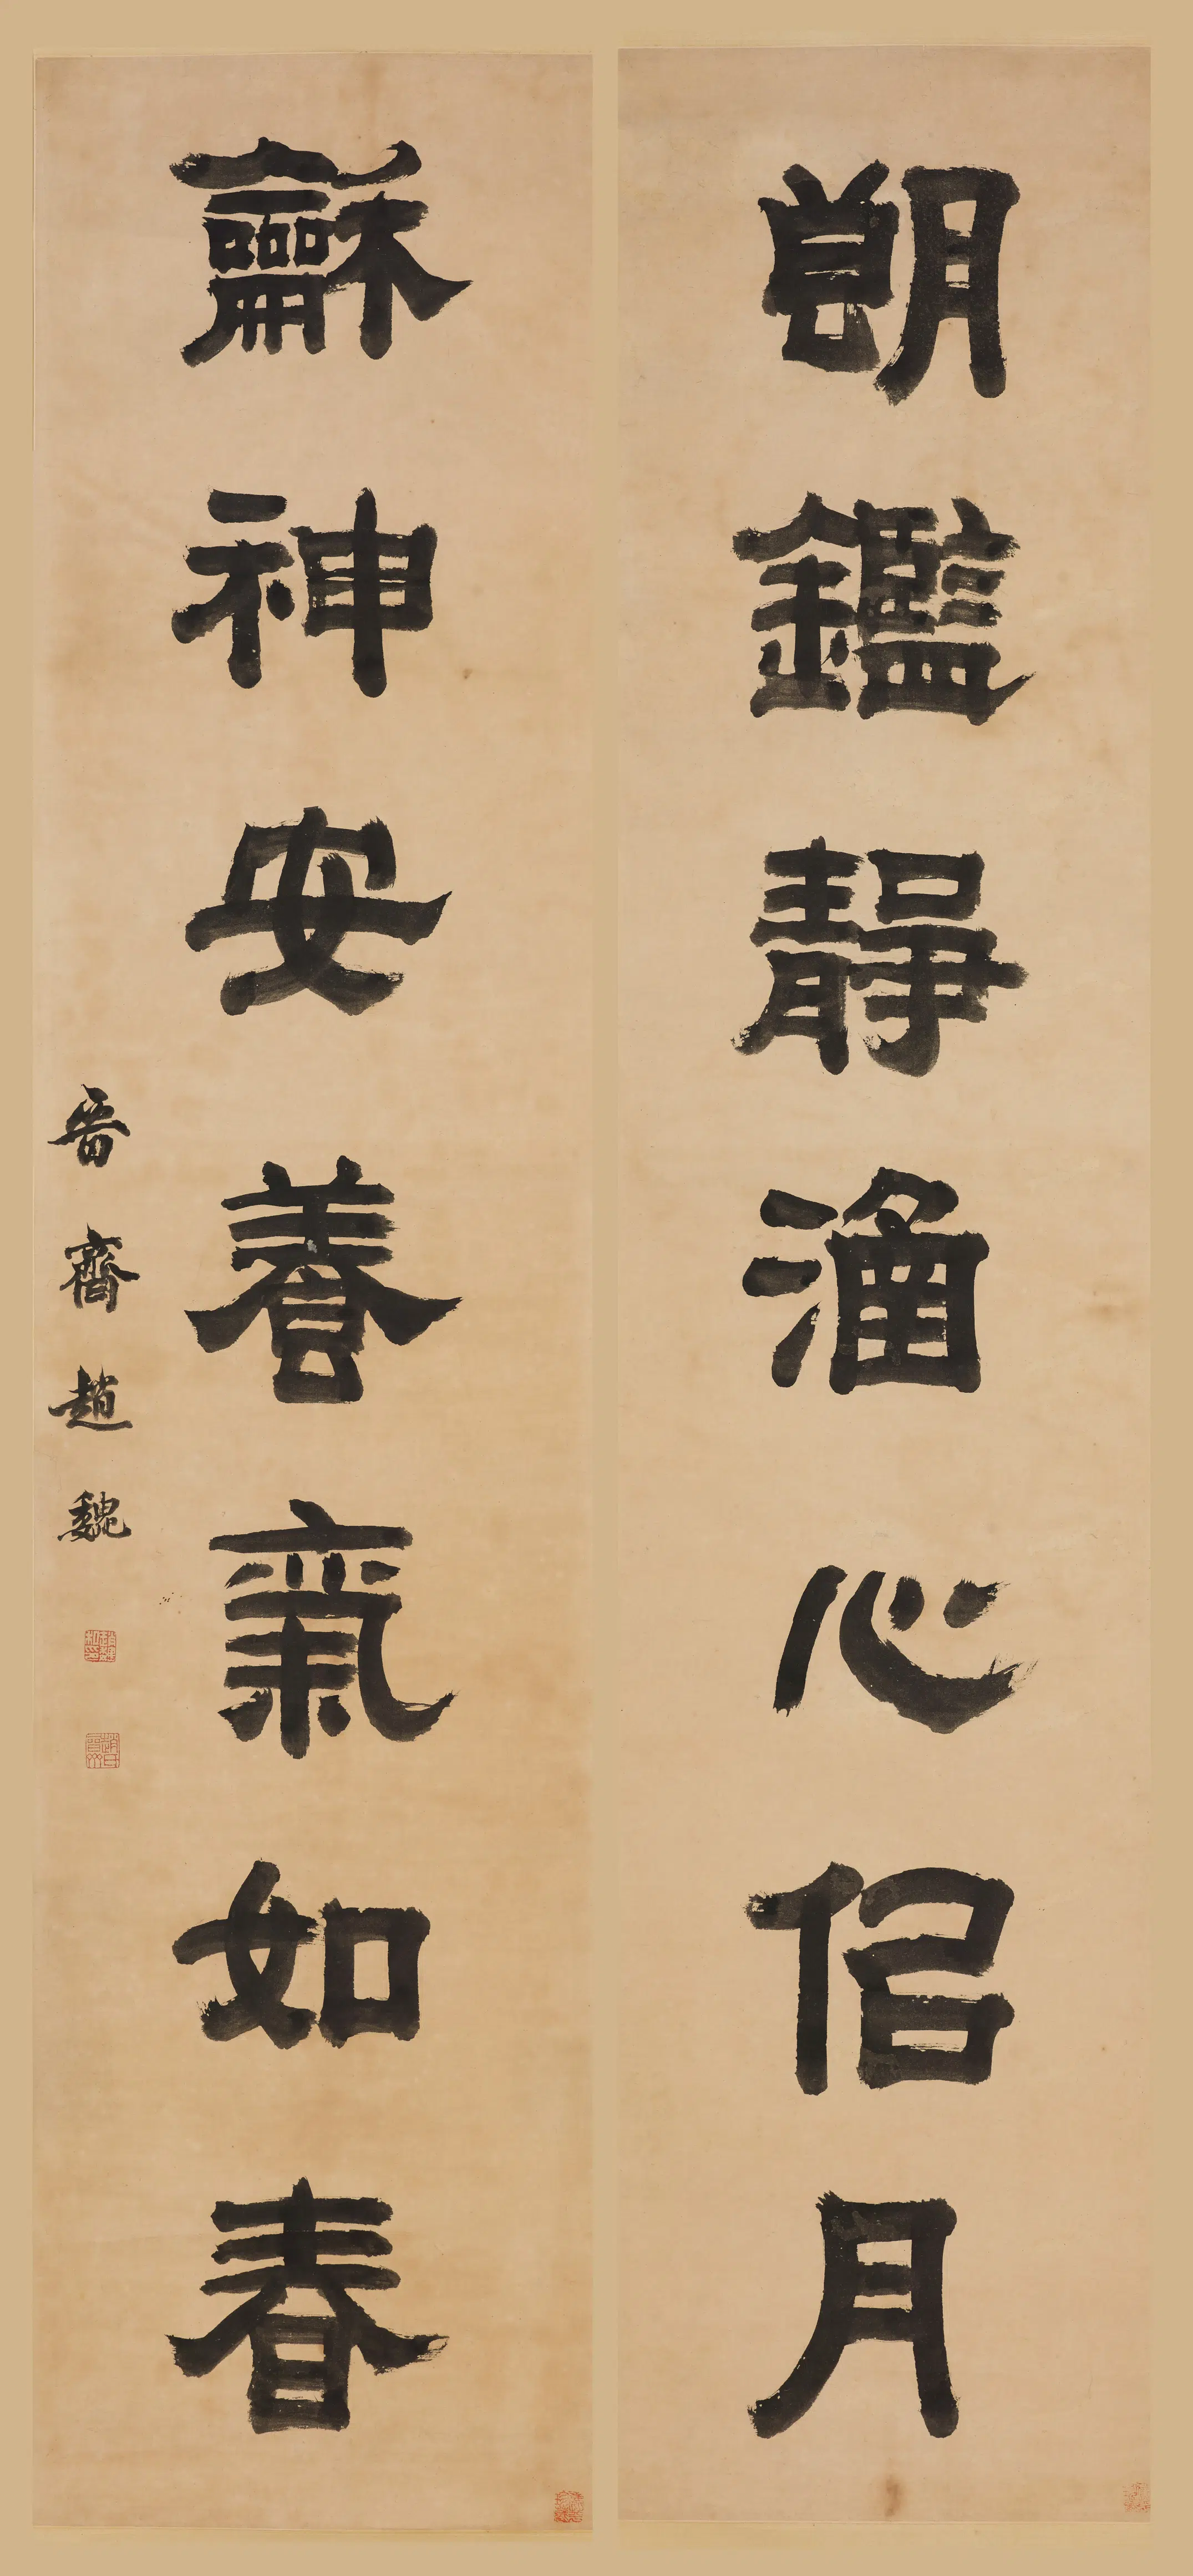 朗鑑靜涵心佀月
龢神安養氣如春
晉齋趙魏